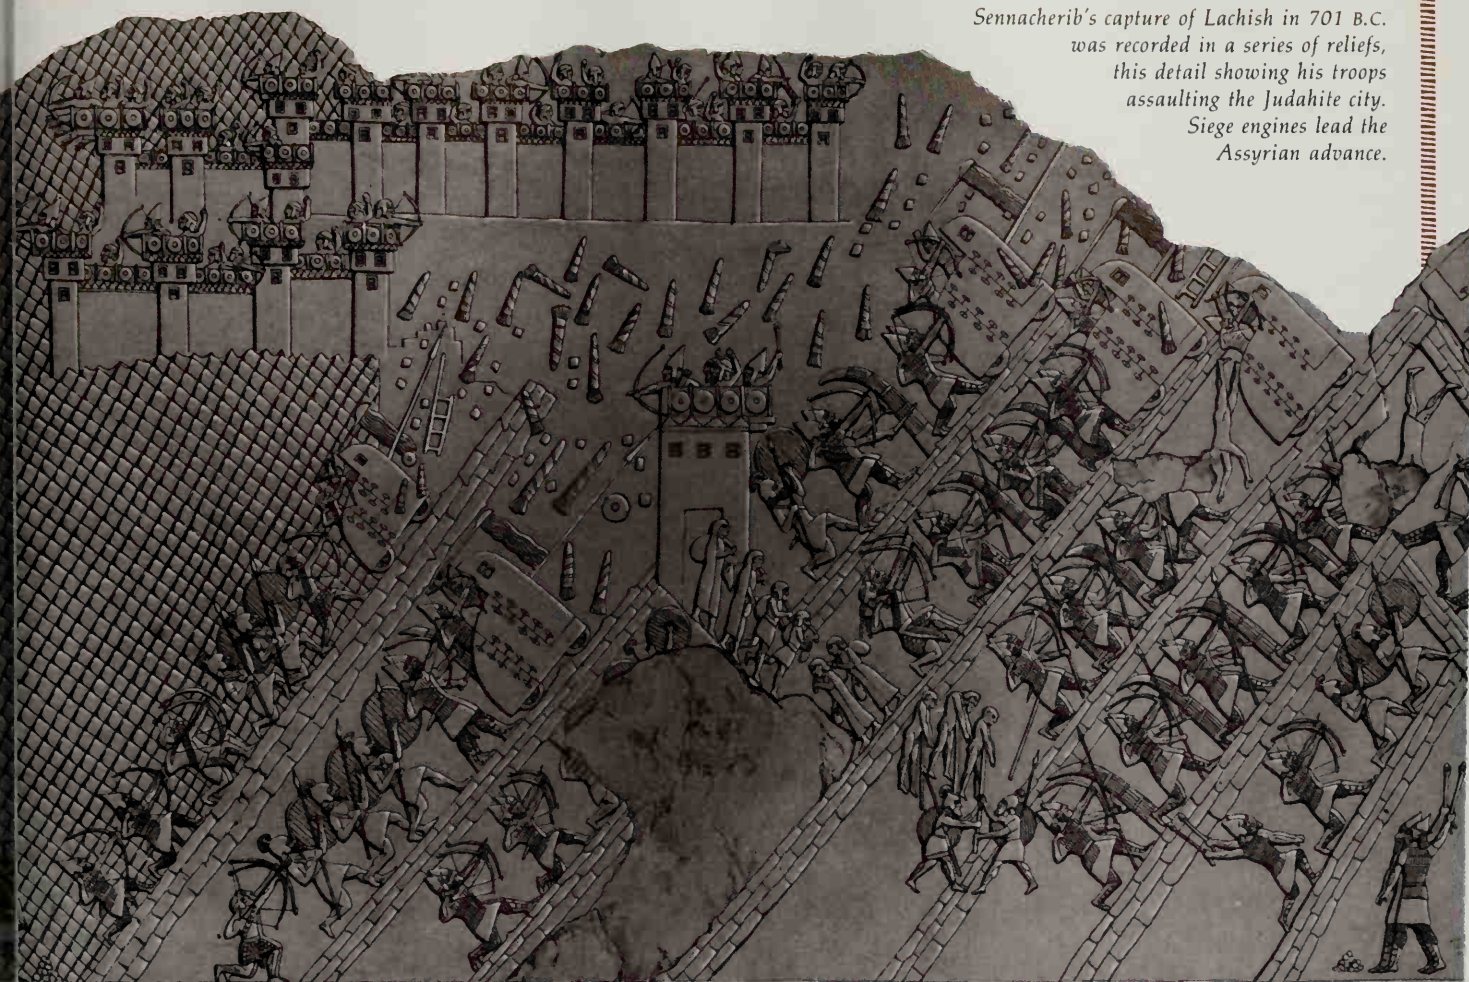 Sennacherib's capture of Lachish in 701 B.C.
was recorded in a series of reliefs,
this detail showing his troops
assaulting the Judahite city.
Siege engines lead the
Assyrian advance.